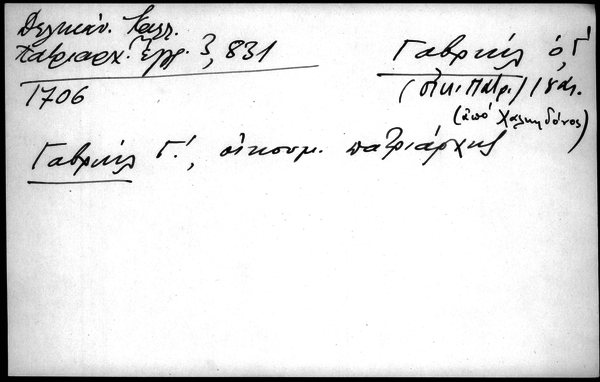 Δελικάν. Καλλ.
Πατριαρχ. Έγγρ. 3, 831
1706
Γαβριήλ ὁ Γ΄
(οἰκ. πατρ.)
(ἀπό Χαλκηδόνος)
Γαβριήλ Γ΄., οἰκουμ. πατριάρχης